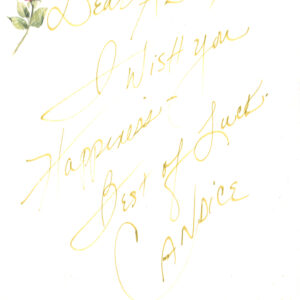 Dear
I Wish You
Happiness -
Best of Luck.
CANDICE